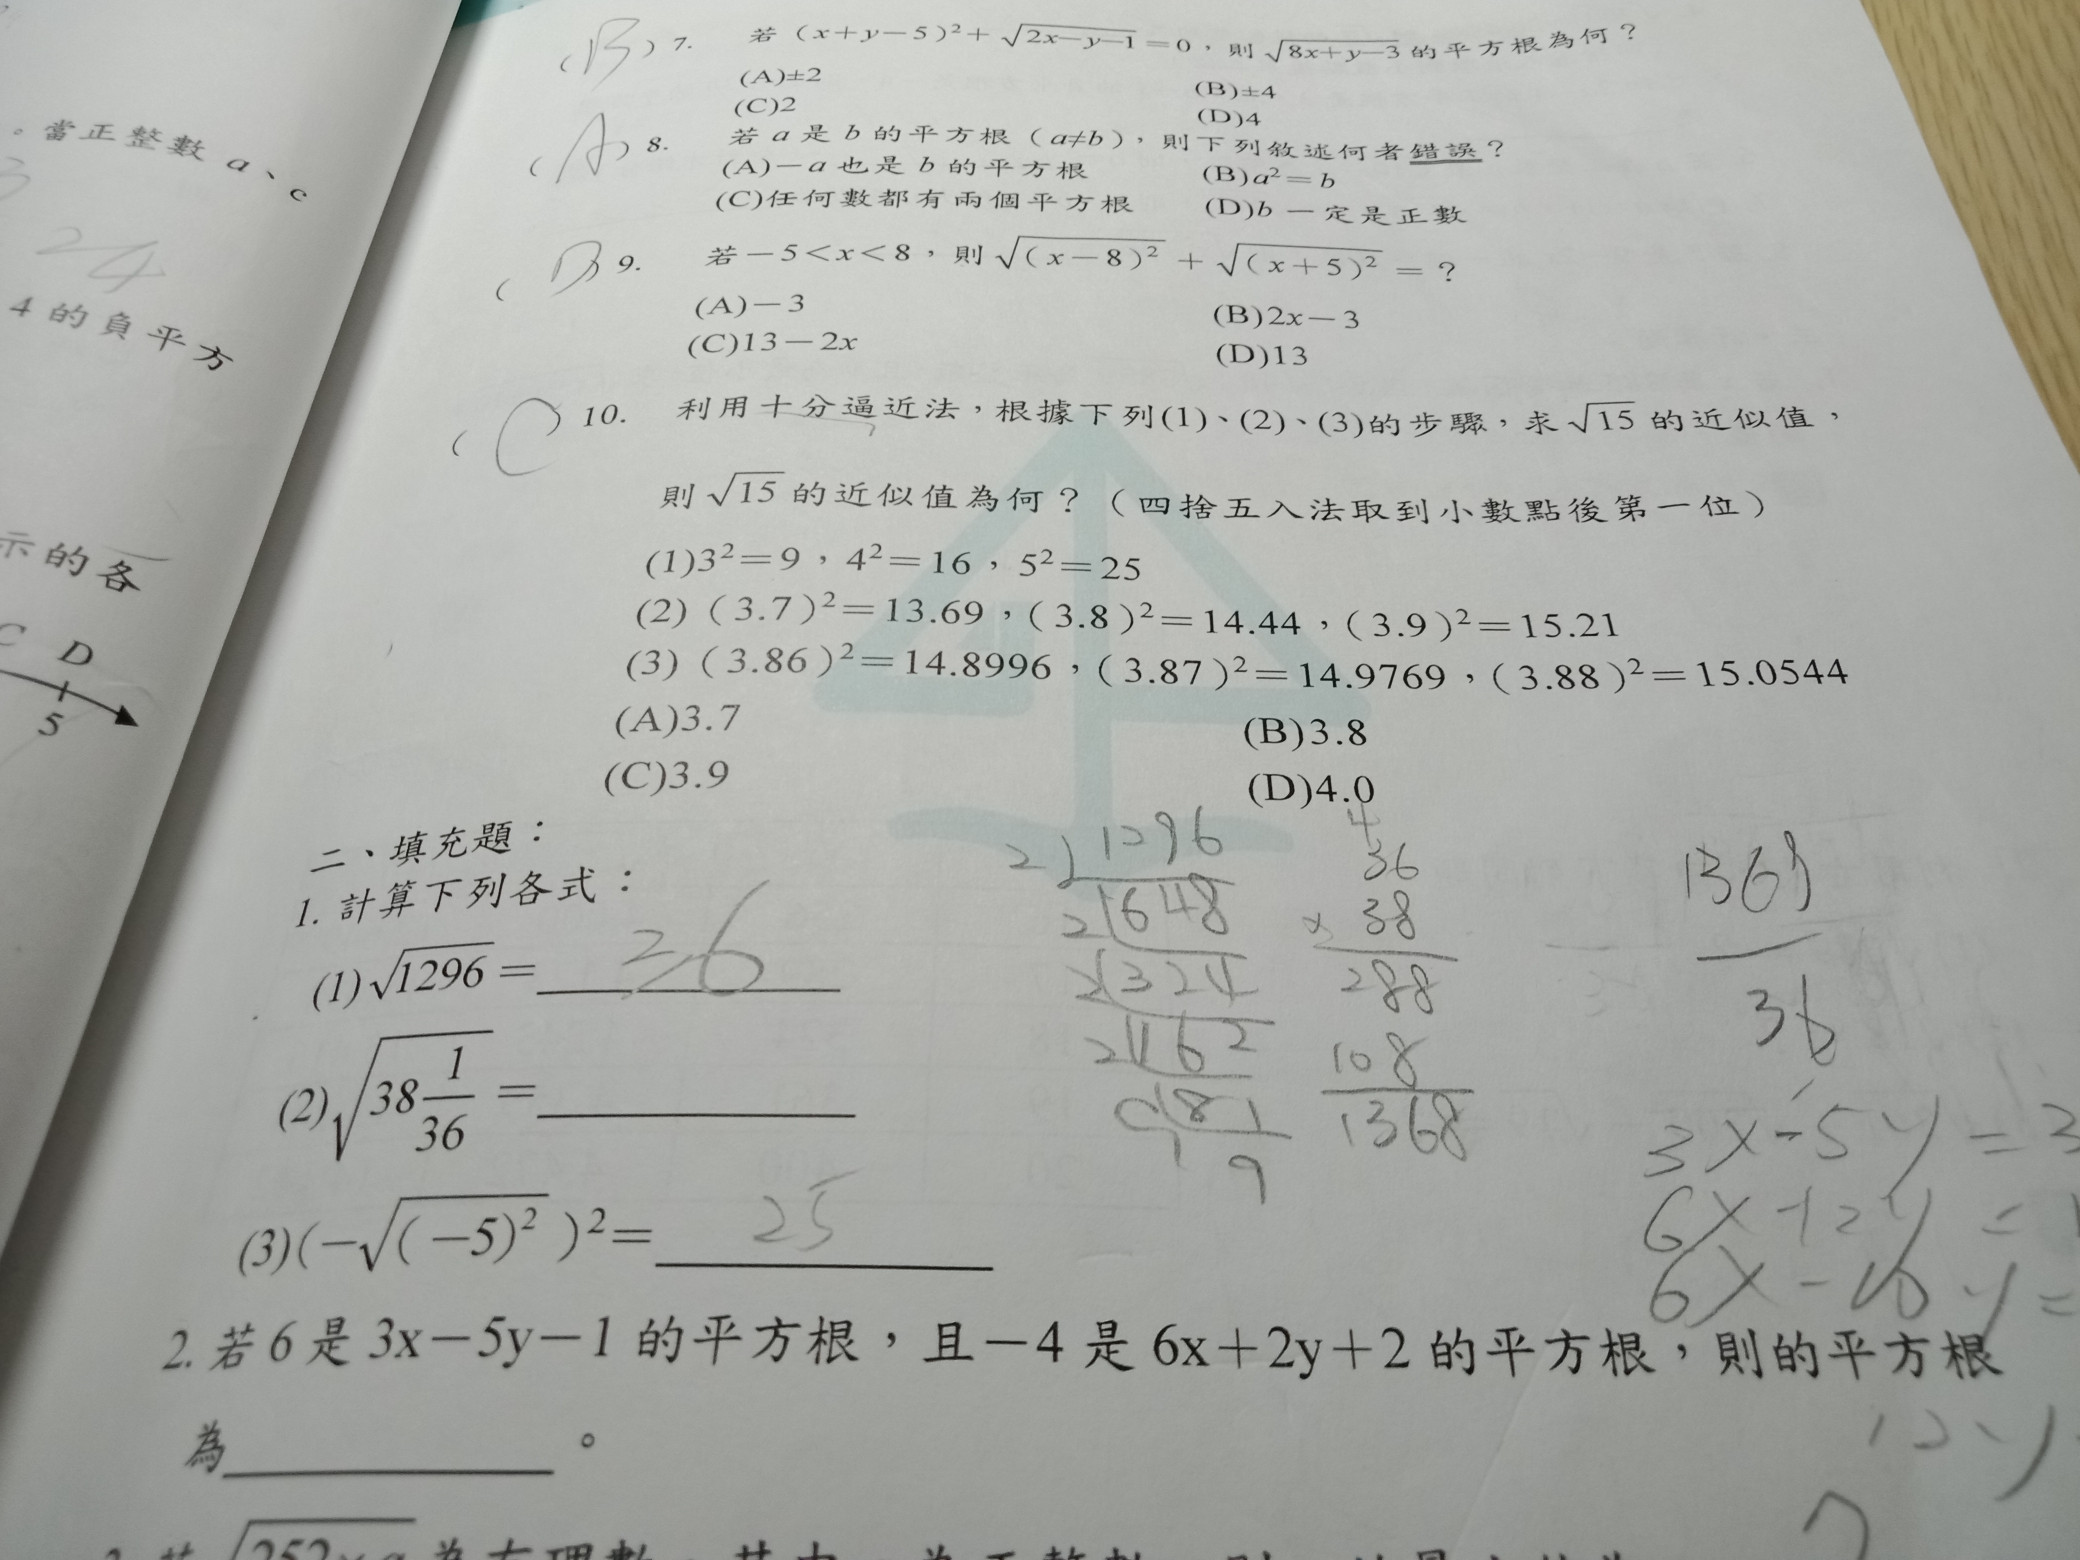 。當正整數 a、c
3
-24
4 的負平方
示的各
C D
5
(B) 7. 若 (x+y−5)²+√(2x−y−1)=0，則 √(8x+y−3) 的平方根為何？
(A)±2 (B)±4
(C)2 (D)4
(A) 8. 若 a 是 b 的平方根（a≠b），則下列敘述何者錯誤？
(A)−a 也是 b 的平方根 (B)a²=b
(C)任何數都有兩個平方根 (D)b 一定是正數
(D) 9. 若−5<x<8，則 √(x−8)² + √(x+5)² =？
(A)−3 (B)2x−3
(C)13−2x (D)13
(C) 10. 利用十分逼近法，根據下列(1)、(2)、(3)的步驟，求 √15 的近似值，
則 √15 的近似值為何？（四捨五入法取到小數點後第一位）
(1)3²=9，4²=16，5²=25
(2)（3.7）²=13.69，（3.8）²=14.44，（3.9）²=15.21
(3)（3.86）²=14.8996，（3.87）²=14.9769，（3.88）²=15.0544
(A)3.7 (B)3.8
(C)3.9 (D)4.0
二、填充題：
1. 計算下列各式：
(1)√1296 = 36
(2)√(38 1/36) =
(3)(−√(−5)²)²= 25
2) 1296
2 648
2 324
2 162
9 81
9
4
36
× 38
288
108
1368
1369
36
3x-5y=3
6x+2y=1
6x-10y=
2. 若 6 是 3x−5y−1 的平方根，且−4 是 6x+2y+2 的平方根，則的平方根
為 。
12y
252